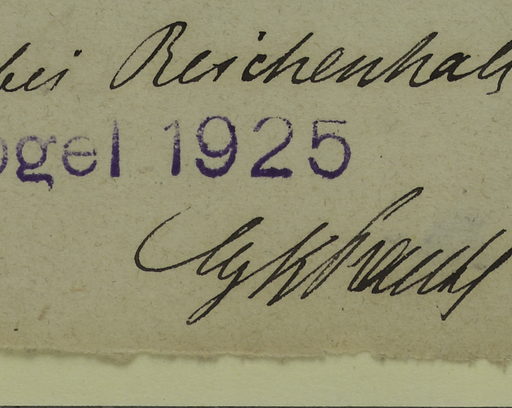 bei Reichenhall
ogel 1925